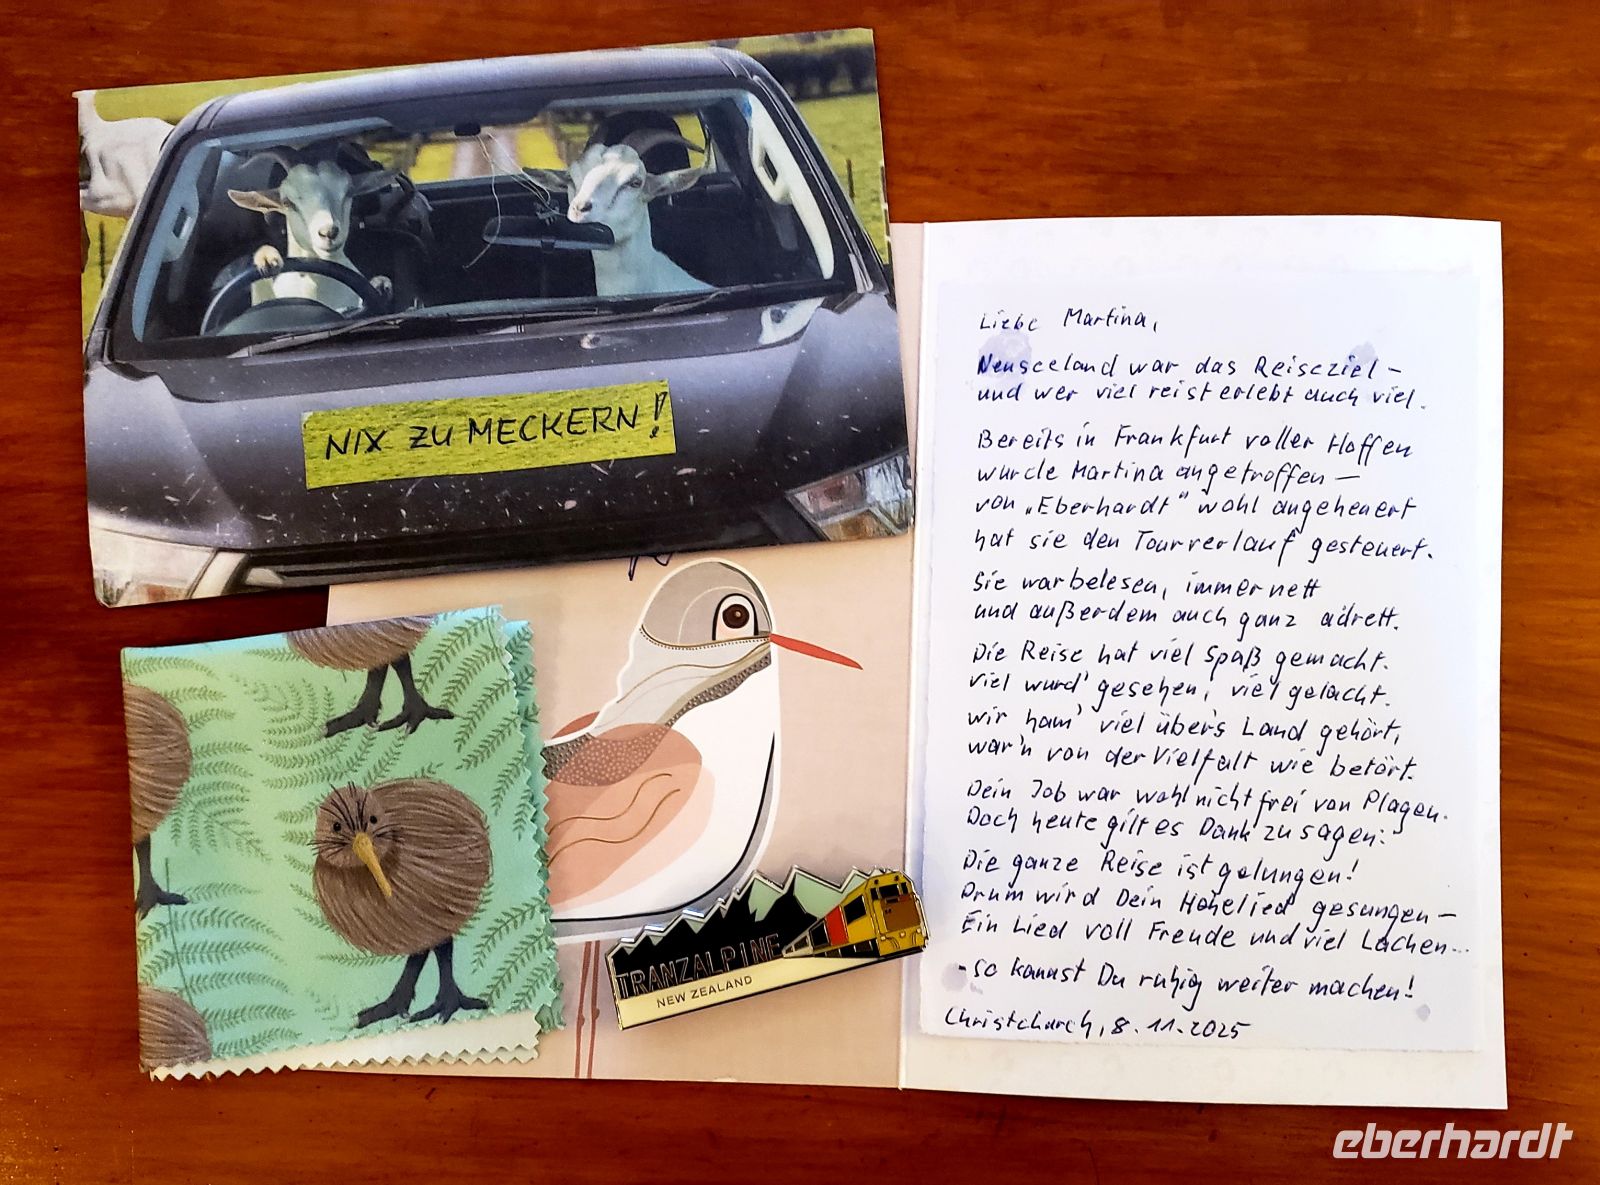 NIX ZU MECKERN!
TRANZALPINE
NEW ZEALAND
Liebe Martina,
Neuseeland war das Reiseziel –
und wer viel reist erlebt auch viel.
Bereits in Frankfurt voller Hoffen
wurde Martina angetroffen –
von „Eberhardt“ wohl angeheuert
hat sie den Tourverlauf gesteuert.
Sie war belesen, immer nett
und außerdem auch ganz adrett.
Die Reise hat viel Spaß gemacht.
Viel wurd' gesehen, viel gelacht.
Wir ham' viel über's Land gehört,
war'n von der Vielfalt wie betört.
Dein Job war wohl nicht frei von Plagen.
Doch heute gilt es Dank zu sagen:
Die ganze Reise ist gelungen!
Drum wird Dein Hohelied gesungen –
Ein Lied voll Freude und viel Lachen...
- so kannst Du ruhig weiter machen!
Christchurch, 8.11.2025
eberhardt